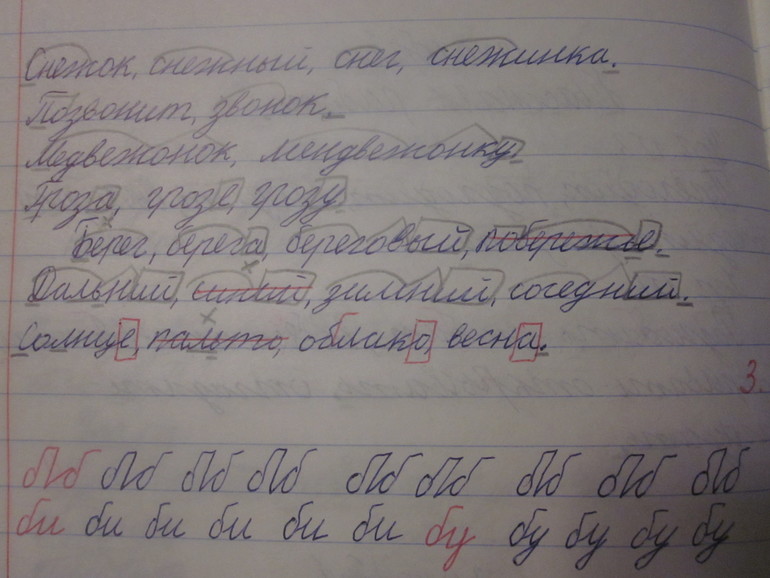 Снежок, снежный, снег, снежинка.
Позвонит, звонок.
Медвежонок, мендвежонку.
Гроза, грозе, грозу
Берег, берега, береговый, побережье.
Дальний, синий, зимний, соседний.
Солнце, пальто, облако, весна.
3.
бПб бПб бПб бПб бПб бПб бПб бПб бПб
би би би би би би бу бу бу бу бу